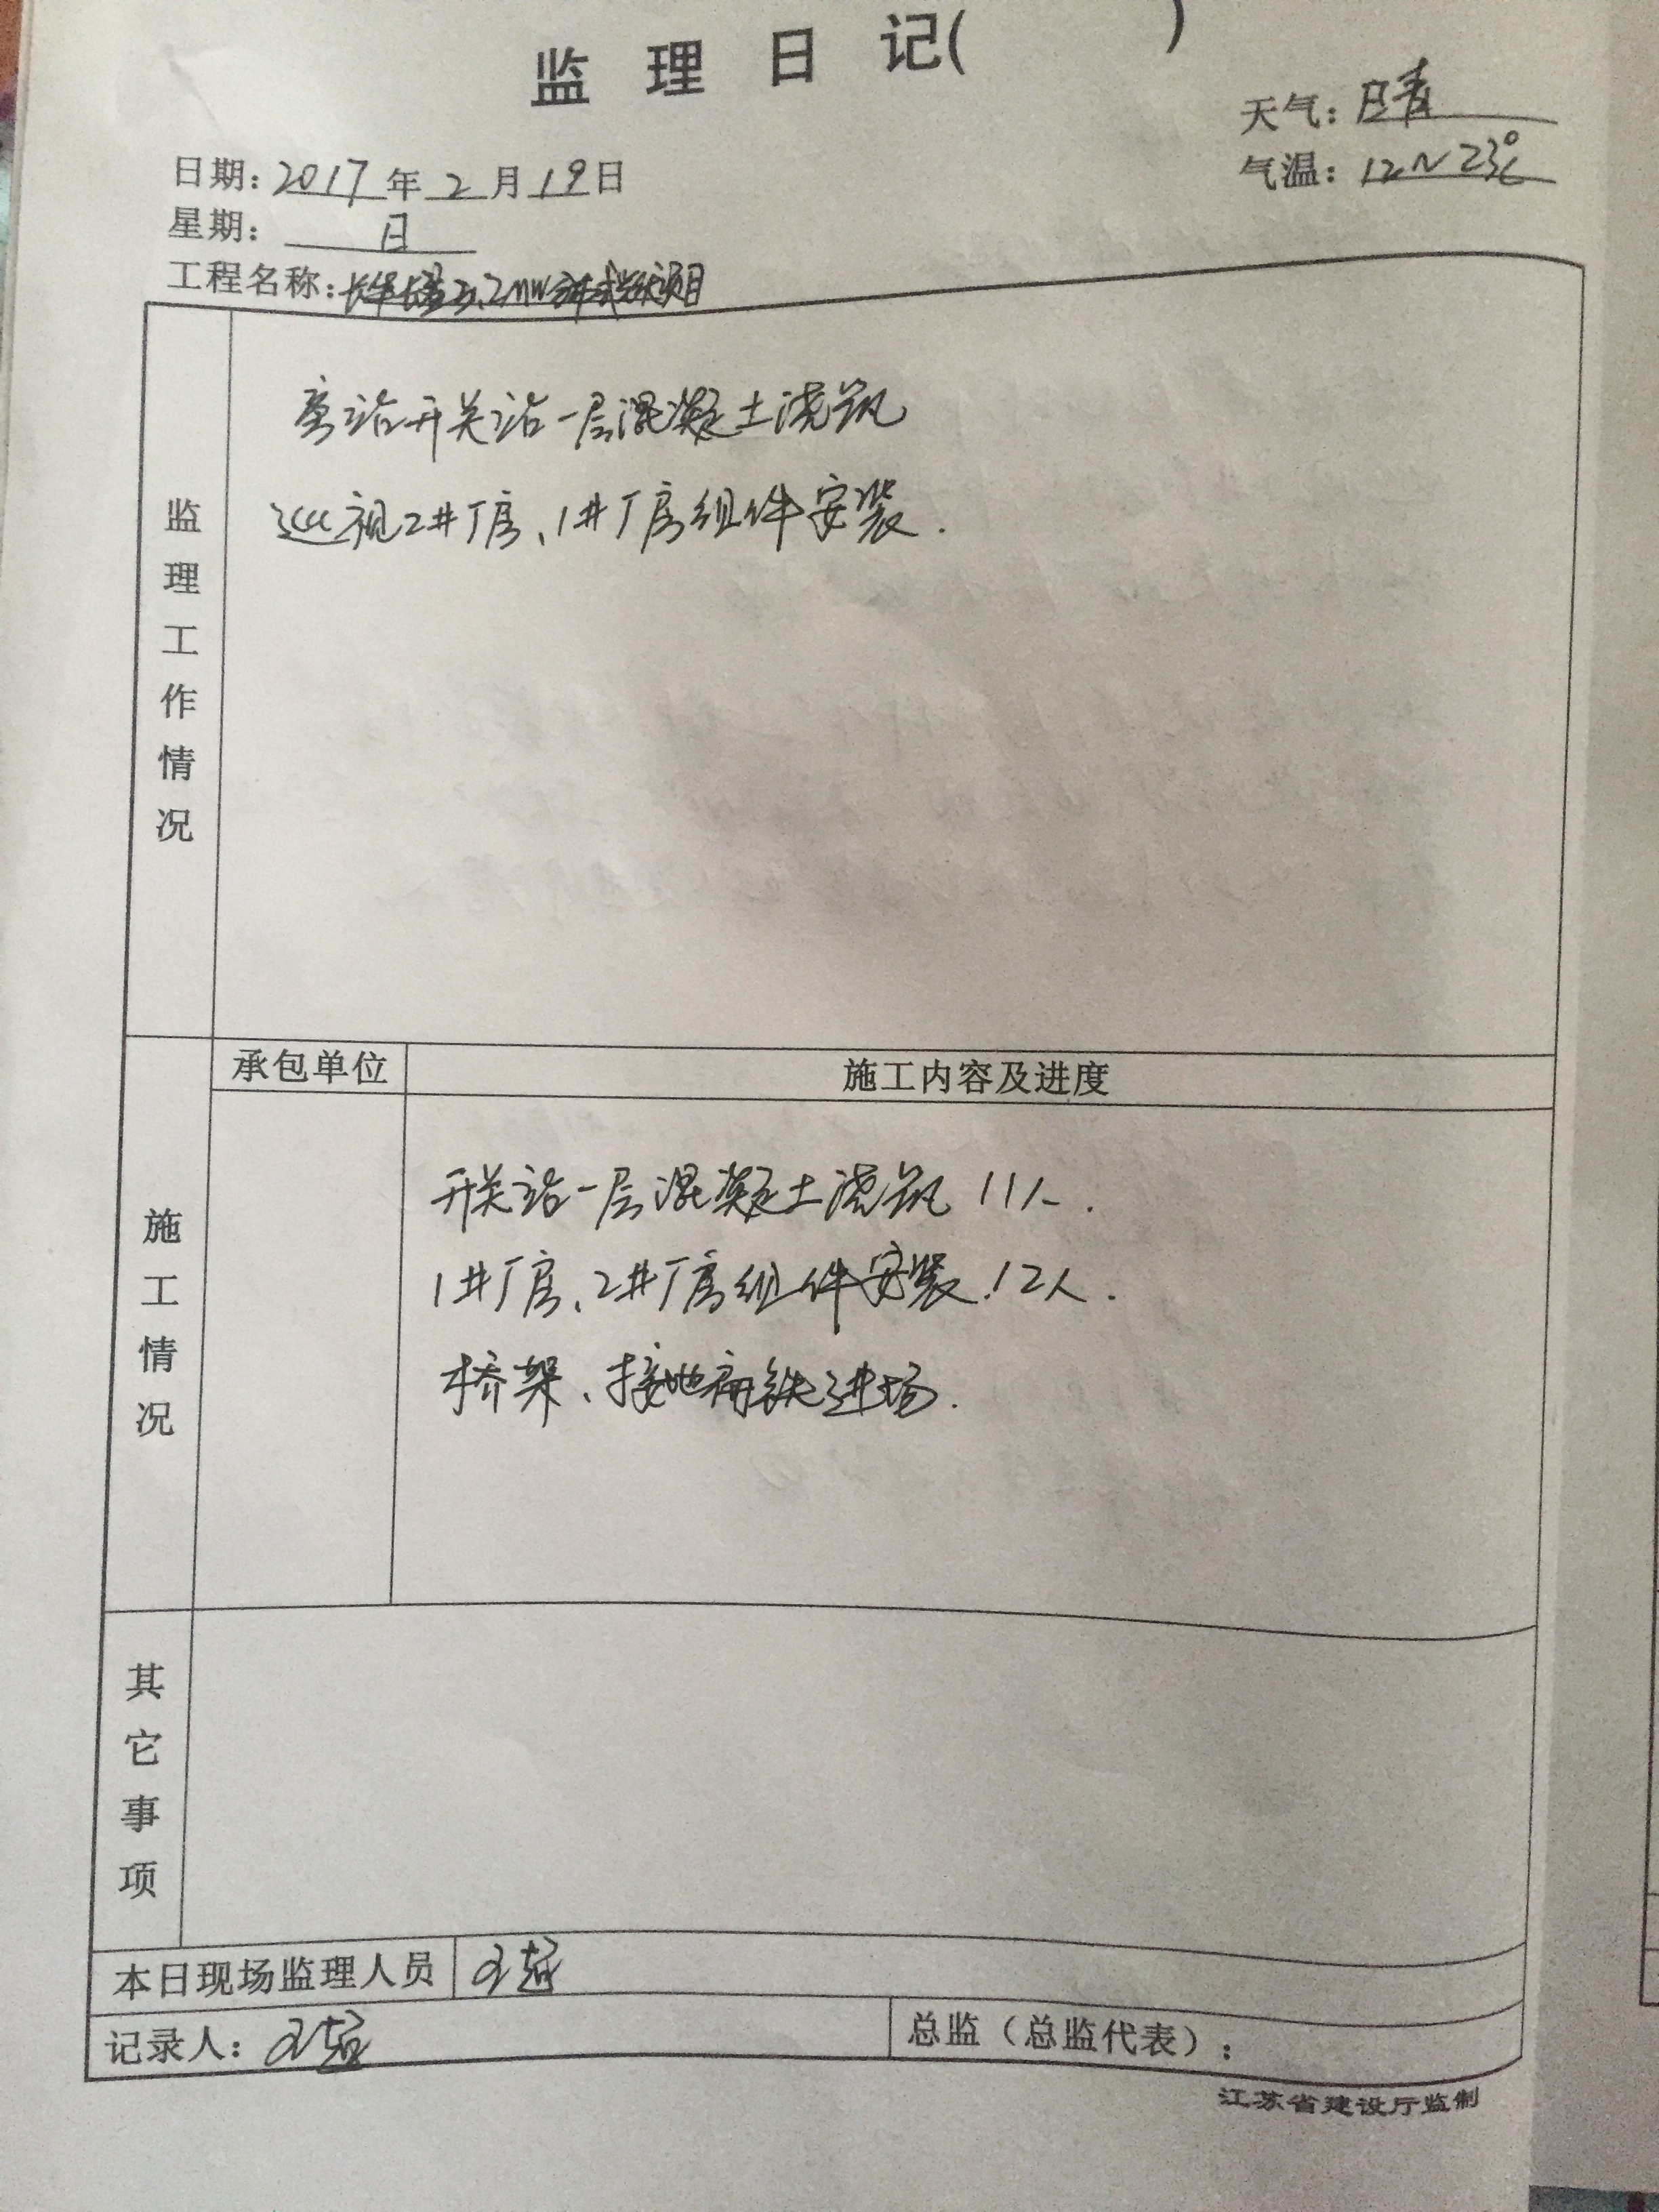 监理日记( )
天气：晴
日期：2017年2月19日
气温：12~23℃
星期：日
工程名称：2MW分布式光伏项目
监理工作情况
旁站开关站一层混凝土浇筑
巡视2#厂房、1#厂房组件安装.
承包单位
施工内容及进度
施工情况
开关站一层混凝土浇筑 11人.
1#厂房、2#厂房组件安装.12人.
桥架、接地扁铁进场.
其它事项
本日现场监理人员
记录人：
总监（总监代表）：
江苏省建设厅监制